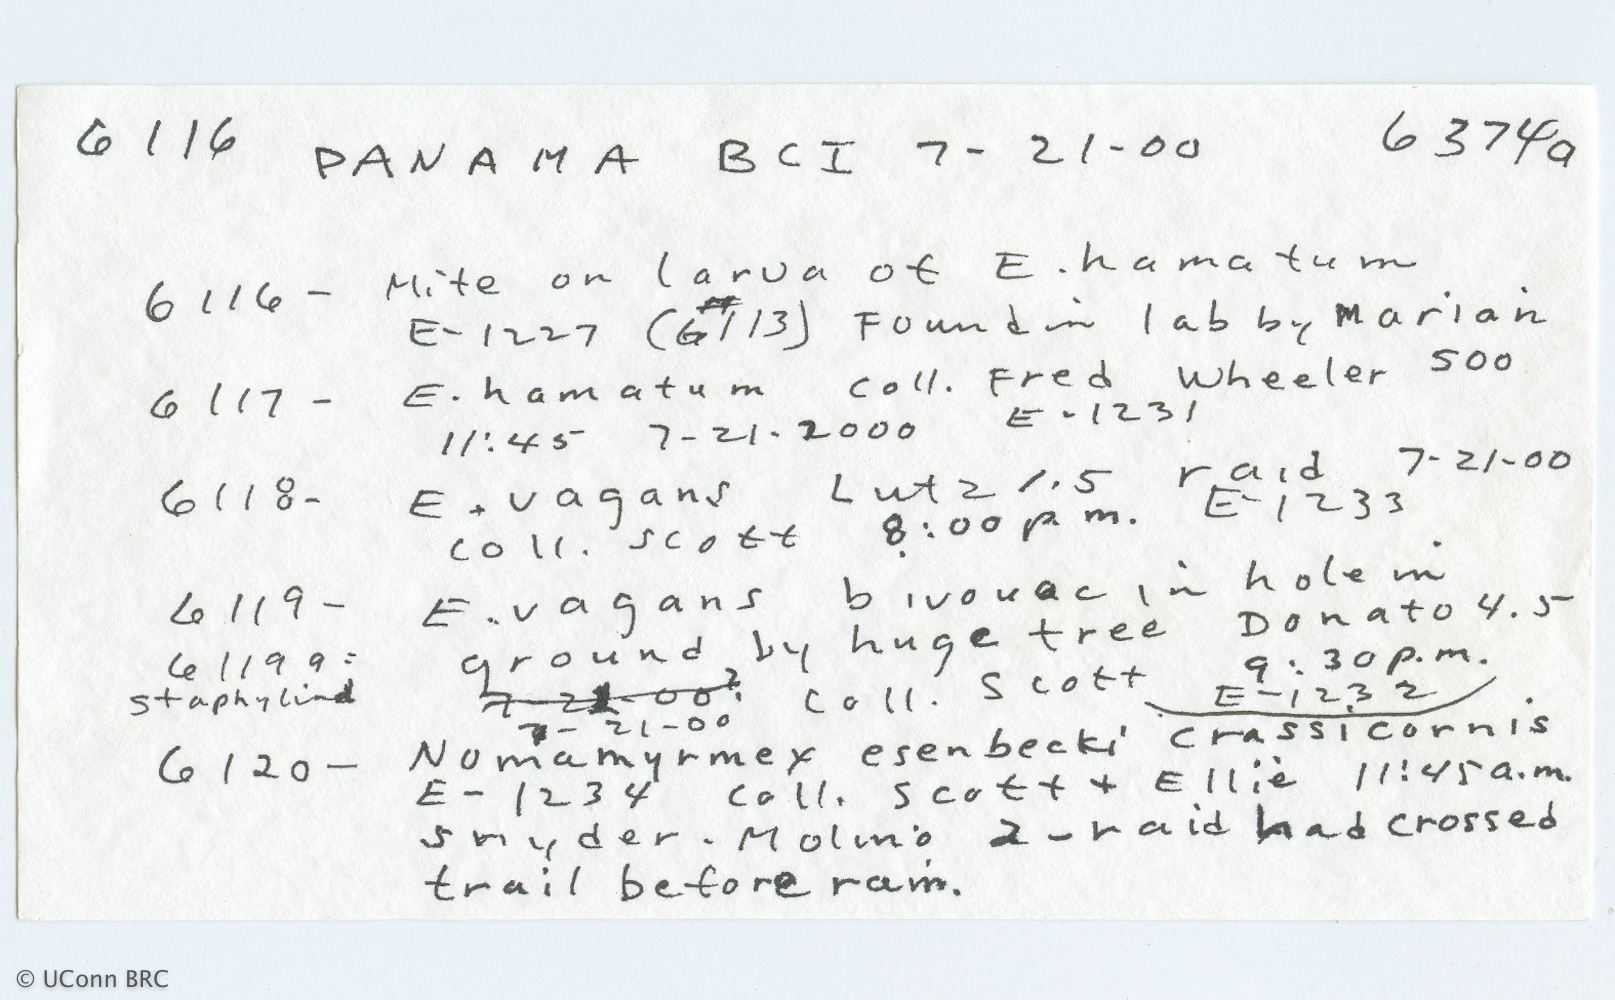 6116 PANAMA BCI 7-21-00 6374a
6116 - Mite on larva of E. hamatum
E-1227 (#6113) Found in lab by Marian
6117 - E. hamatum coll. Fred Wheeler 500
11:45 7-21-2000 E-1231
6118 - E. vagans Lutz 1.5 raid 7-21-00
coll. Scott 8:00 p.m. E-1233
6119 - E. vagans bivouac in hole in
ground by huge tree Donato 4.5
6119a: 9:30 p.m.
staphylinid 7-21-00? coll. Scott E-1232
7-21-00
6120 - Nomamyrmex esenbecki crassicornis
E-1234 Coll. Scott + Ellie 11:45 a.m.
Snyder-Molino 2 - raid had crossed
trail before rain.
© UConn BRC